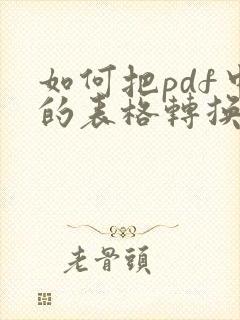 如何把pdf中
的表格轉換
老骨頭